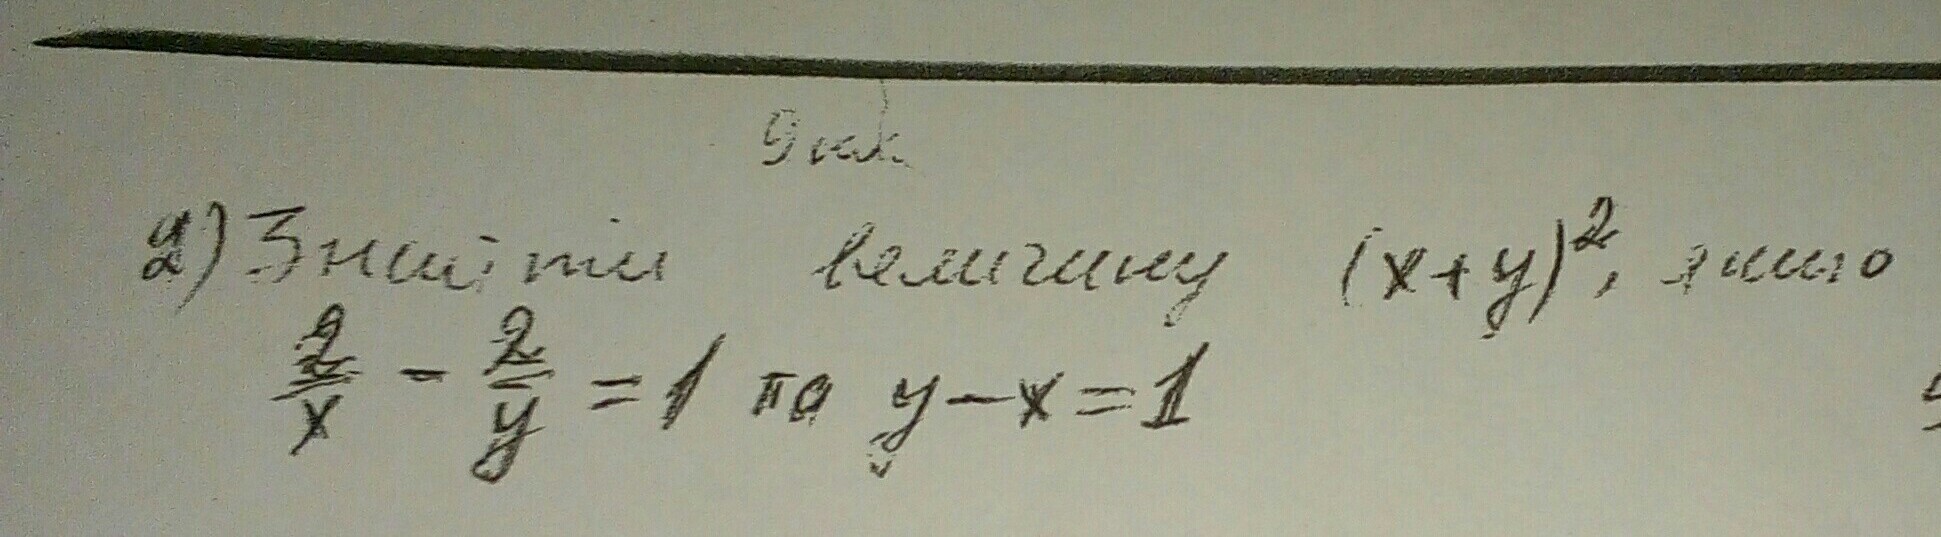 9 кл
2) Знайти величину (x+y)², якщо
2/x - 2/y = 1 та y-x=1